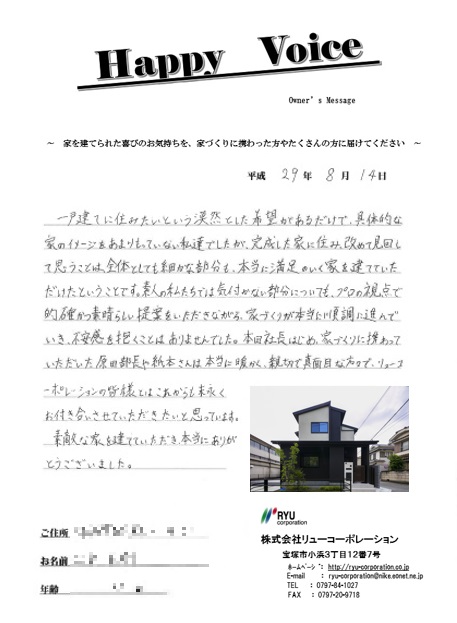 Happy Voice
Owner's Message
～ 家を建てられた喜びのお気持ちを、家づくりに携わった方やたくさんの方に届けてください ～
平成 29 年 8 月 14 日
一戸建てに住みたいという漠然とした希望があるだけで、具体的な
家のイメージをあまりもっていない私達でしたが、完成した家に住み、改めて見回し
て思うことは、全体としても細かな部分も、本当に満足のいく家を建てていた
だけたということです。素人の私たちでは気付かない部分についても、プロの視点で
的確かつ素晴らしい提案をいただきながら、家づくりが本当に順調に進んで
いき、不安感を抱くことはありませんでした。本田社長はじめ、家づくりに携わって
いただいた原田部長や紙本さんは本当に暖かく、親切で真面目な方々で、リューコ
ーポレーションの皆様とはこれからも末永く
お付き合いさせていただきたいと思っています。
素敵な家を建てていただき、本当にありが
とうございました。
RYU
corporation
株式会社リューコーポレーション
宝塚市小浜3丁目12番7号
ホームページ: http://ryu-corporation.co.jp
E-mail : ryu-corporation@nike.eonet.ne.jp
TEL : 0797-84-1027
FAX : 0797-20-9718
ご住所
お名前
年齢